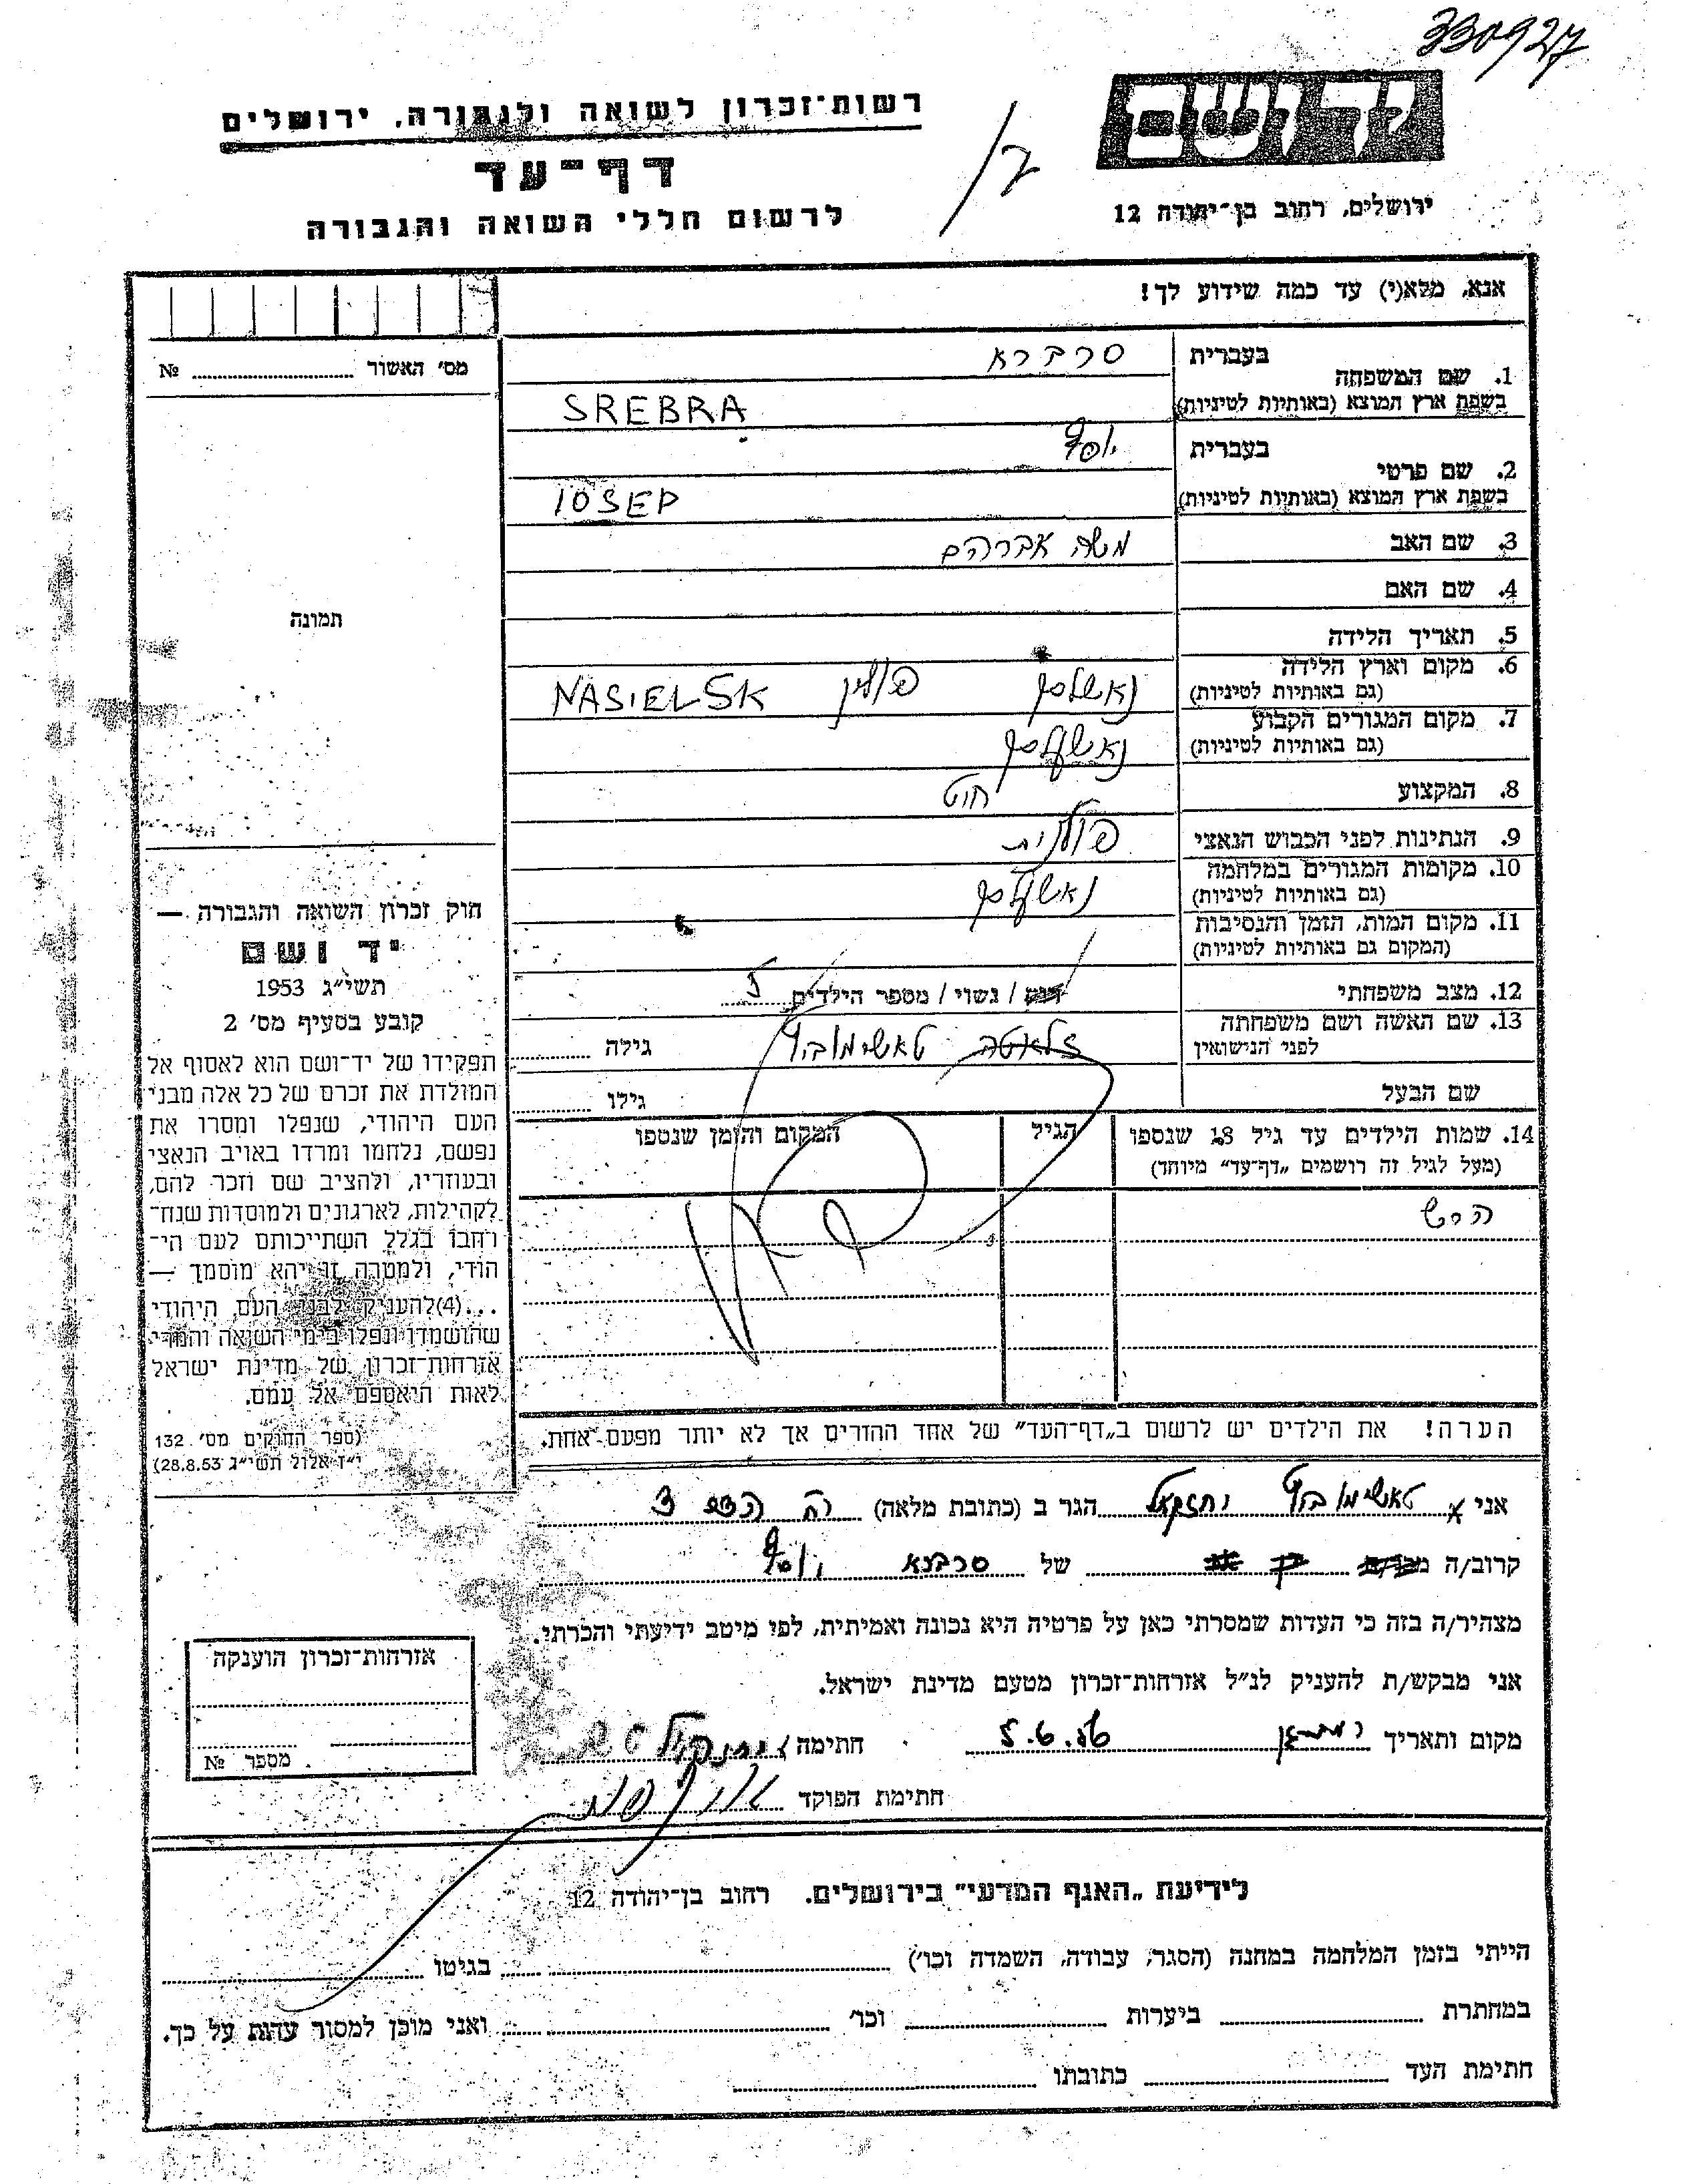 330927
יד ושם
ירושלים, רחוב בן־יהודה 12
רשות־זכרון לשואה ולגבורה, ירושלים
דף־עד
לרשום חללי השואה והגבורה
אנא, מלא(י) עד כמה שידוע לך!
מס' האשור № 
1. שם המשפחה
בעברית סרברא
בשפת ארץ המוצא (באותיות לטיניות) SREBRA
2. שם פרטי
בעברית יוסף
בשפת ארץ המוצא (באותיות לטיניות) IOSEP
3. שם האב משה אברהם
4. שם האם
תמונה
5. תאריך הלידה
6. מקום וארץ הלידה
(גם באותיות לטיניות) נאשלסק פולין NASIELSK
7. מקום המגורים הקבוע
(גם באותיות לטיניות) נאשעלסק
8. המקצוע
9. הנתינות לפני הכבוש הנאצי פולנית
10. מקומות המגורים במלחמה
(גם באותיות לטיניות) נאשעלסק
11. מקום המות, הזמן והנסיבות
(המקום גם באותיות לטיניות)
12. מצב משפחתי רווק / נשוי / מספר הילדים 5
13. שם האשה ושם משפחתה
לפני הנישואין זלאטה טאשימוביץ גילה
שם הבעל גילו
14. שמות הילדים עד גיל 18 שנספו
(מעל לגיל זה רושמים "דף־עד" מיוחד)
הגיל
המקום והזמן שנספו
הירש
הערה! את הילדים יש לרשום ב"דף־העד" של אחד ההורים אך לא יותר מפעם אחת.
חוק זכרון השואה והגבורה —
יד ושם
תשי"ג 1953
קובע בסעיף מס' 2
תפקידו של יד־ושם הוא לאסוף אל
המולדת את זכרם של כל אלה מבני
העם היהודי, שנפלו ומסרו את
נפשם, נלחמו ומרדו באויב הנאצי
ובעוזריו, ולהציב שם וזכר להם,
לקהילות, לארגונים ולמוסדות שנח־
רבו בגלל השתייכותם לעם הי־
הודי, ולמטרה זו יהא מוסמך —
...(4) להעניק לבני העם היהודי
שהושמדו ונפלו בימי השואה והמרי
אזרחות־זכרון של מדינת ישראל
לאות היאספם אל עמם.
(ספר החוקים מס' 132
י"ז אלול תשי"ג 28.8.53)
אני טאשימוביץ יחזקאל הגר ב (כתובת מלאה)
קרוב/ה של יוסף
מצהיר/ה בזה כי העדות שמסרתי כאן על פרטיה היא נכונה ואמיתית, לפי מיטב ידיעתי והכרתי.
אני מבקש/ת להעניק לנ"ל אזרחות־זכרון מטעם מדינת ישראל.
מקום ותאריך 5.6.56 חתימה
חתימת הפוקד
אזרחות־זכרון הוענקה
מספר №
לידיעת "האגף המדעי" בירושלים. רחוב בן־יהודה 12
הייתי בזמן המלחמה במחנה (הסגר, עבודה, השמדה וכו') בגיטו
במחתרת ביערות וכו' ואני מוכן למסור עדות על כך.
חתימת העד כתובתו